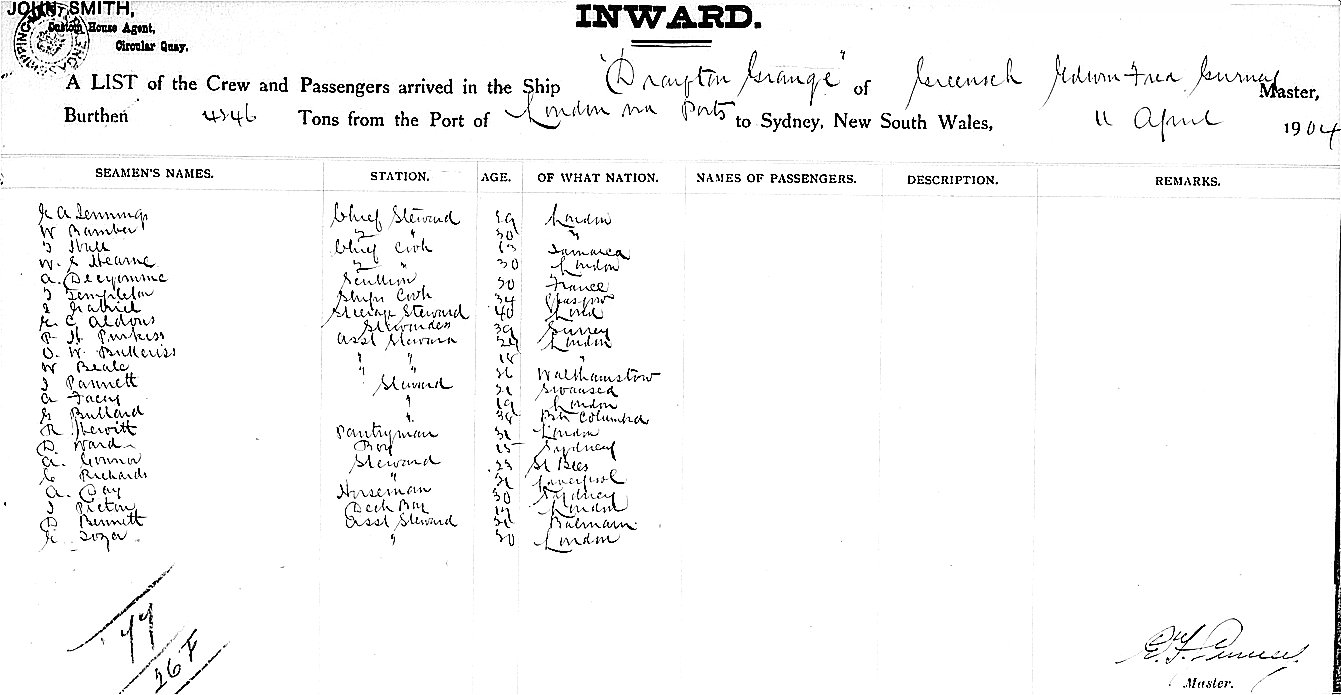 JOHN SMITH,
Custom House Agent,
Circular Quay.
INWARD.
A LIST of the Crew and Passengers arrived in the Ship "Drayton Grange" of Greenock Edwin Fred Gurney Master,
Burthen Tons from the Port of London via Ports to Sydney, New South Wales, 11 April 1904
SEAMEN'S NAMES. STATION. AGE. OF WHAT NATION. NAMES OF PASSENGERS. DESCRIPTION. REMARKS.
Jennings Chief Steward London
W Bamber 2 " 30 "
Hall Chief Cook Jamaica
W. Hearne 2 " 30 London
A. Scullion 30 France
Templeton Ships Cook 34 Glasgow
Gabriel Steward 40
C Aldous Stewardess 39 Surrey
H Purkiss Asst Steward London
W. " " 18 "
W Beale " "  Walthamstow
Pannett Steward Swansea
A Facey " 19 London
Bullard " 38 Columbia
R Hewitt Pantryman London
D. Ward Boy 15 Sydney
A. Connor Steward St Bees
C Richards " Liverpool
A. Day Horseman 30 Sydney
Picton Deck Boy London
D Bennett Asst Steward Balmain
" 30 London
77
26 F
Master.